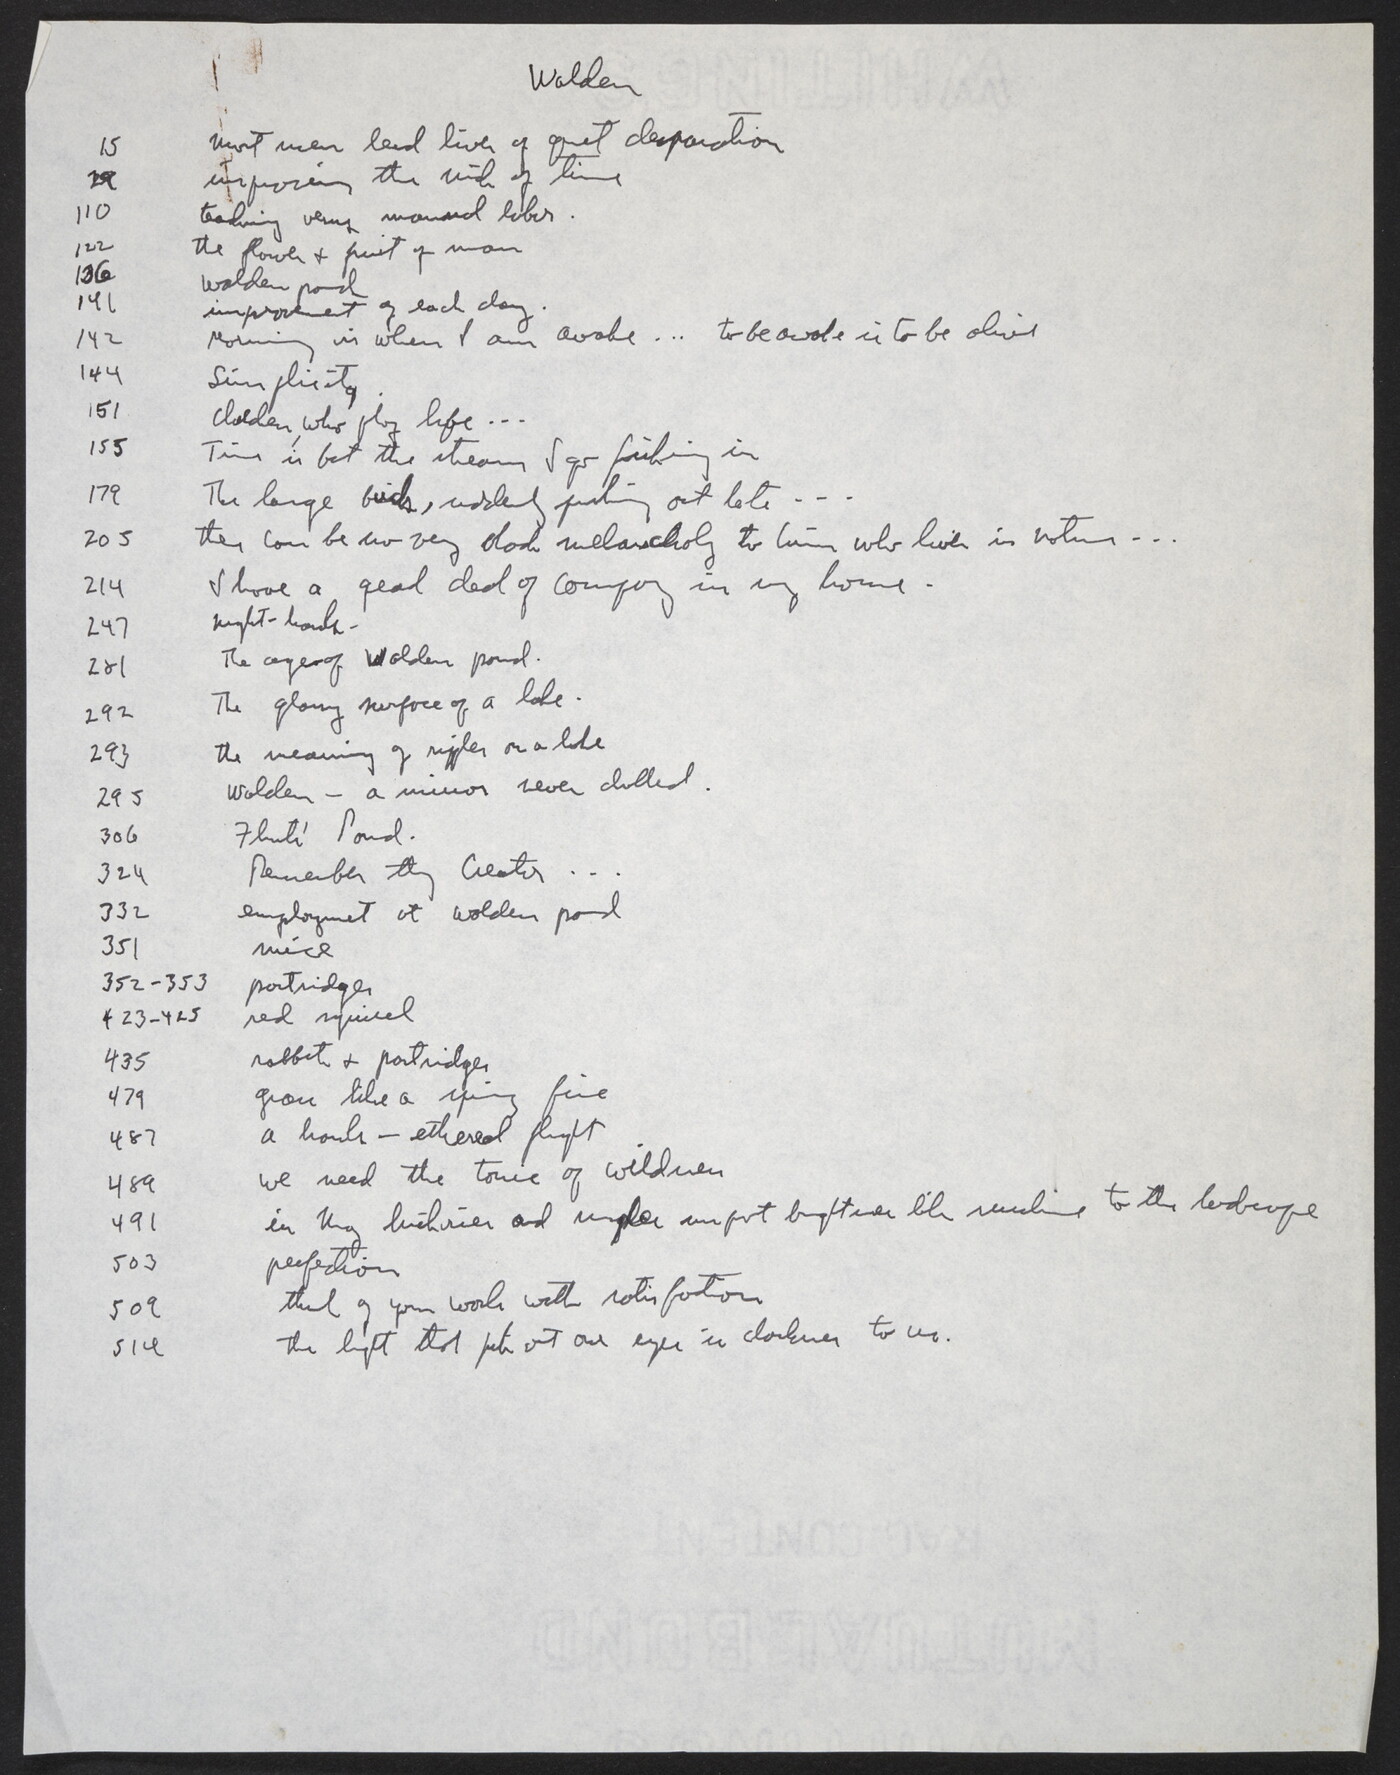 Walden
15 most men lead lives of quiet desperation
29 improving the nick of time
110 teaching versus manual labor.
122 the flower + fruit of man
136 walden pond
141 improvement of each day.
142 Morning is when I am awake ... to be awake is to be alive
144 Simplicity.
151 Children, who play life ...
155 Time is but the stream I go fishing in
179 The large buds, suddenly pushing out late ---
205 there can be no very black melancholy to him who lives in nature ---
214 I have a great deal of company in my house.
247 night-hawks-
281 The ages of Walden pond.
292 The glassy surface of a lake.
293 the meaning of ripples on a lake
295 Walden - a mirror never dulled.
306 Flints' Pond.
324 Remember thy Creator ...
332 employment at walden pond
351 mice
352-353 partridges
423-425 red squirrel
435 rabbits + partridges
479 grass like a spring fire
487 a hawk - ethereal flight
489 we need the tonic of wildness
491 in thy and impart brightness like sunshine to the landscape
503 perfection
509 think of your work with satisfaction
514 the light that puts out our eyes is darkness to us.
RAG CONTENT